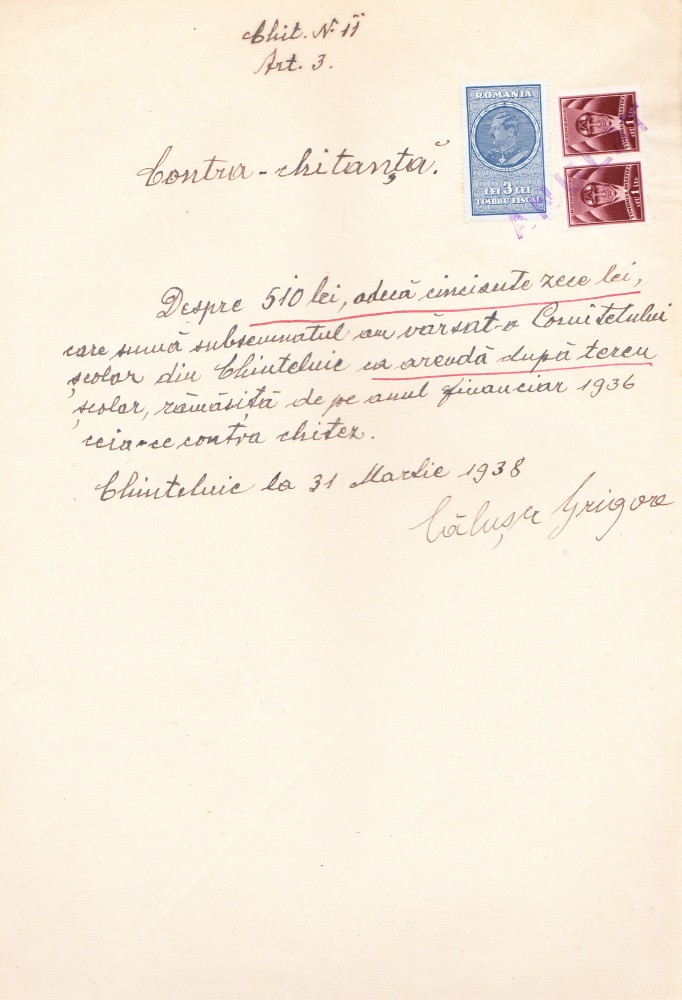 Chit. N. 11
Art. 3.
ROMANIA
LEI 3 LEI
TIMBRU FISCAL
LEU 1 LEU
LEU 1 LEU
Contra-chitanță.
Despre 510 lei, adecă cincisute zece lei,
care sumă subsemnatul am vărsat-o Comitetului
școlar din Chintelnic ca arendă după teren
școlar, rămășiță de pe anul financiar 1936
ceia-ce contra chitez.
Chintelnic la 31 Martie 1938
Călușer Grigore